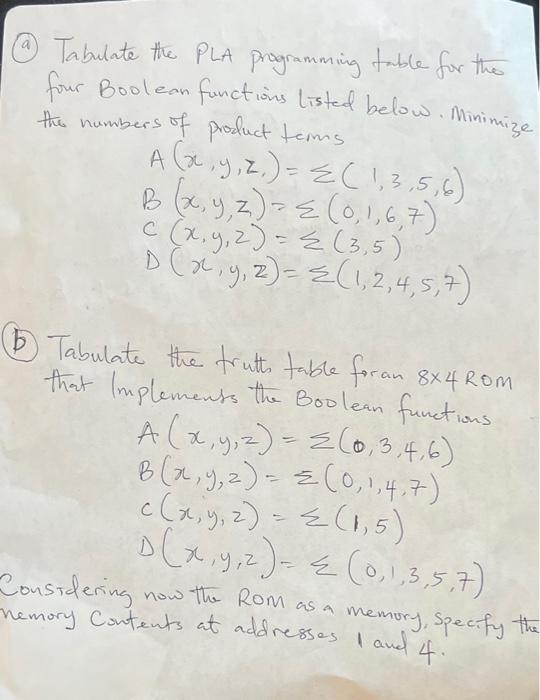 (a) Tabulate the PLA programming table for the
four Boolean functions listed below. Minimize
the numbers of product terms
A(x,y,z,) = Σ(1,3,5,6)
B(x,y,z) = Σ(0,1,6,7)
C(x,y,z) = Σ(3,5)
D(x,y,z) = Σ(1,2,4,5,7)
(b) Tabulate the truth table for an 8x4 ROM
that Implements the Boolean functions
A(x,y,z) = Σ(0,3,4,6)
B(x,y,z) = Σ(0,1,4,7)
C(x,y,z) = Σ(1,5)
D(x,y,z) = Σ(0,1,3,5,7)
Considering now the ROM as a memory, Specify the
memory Contents at addresses 1 and 4.